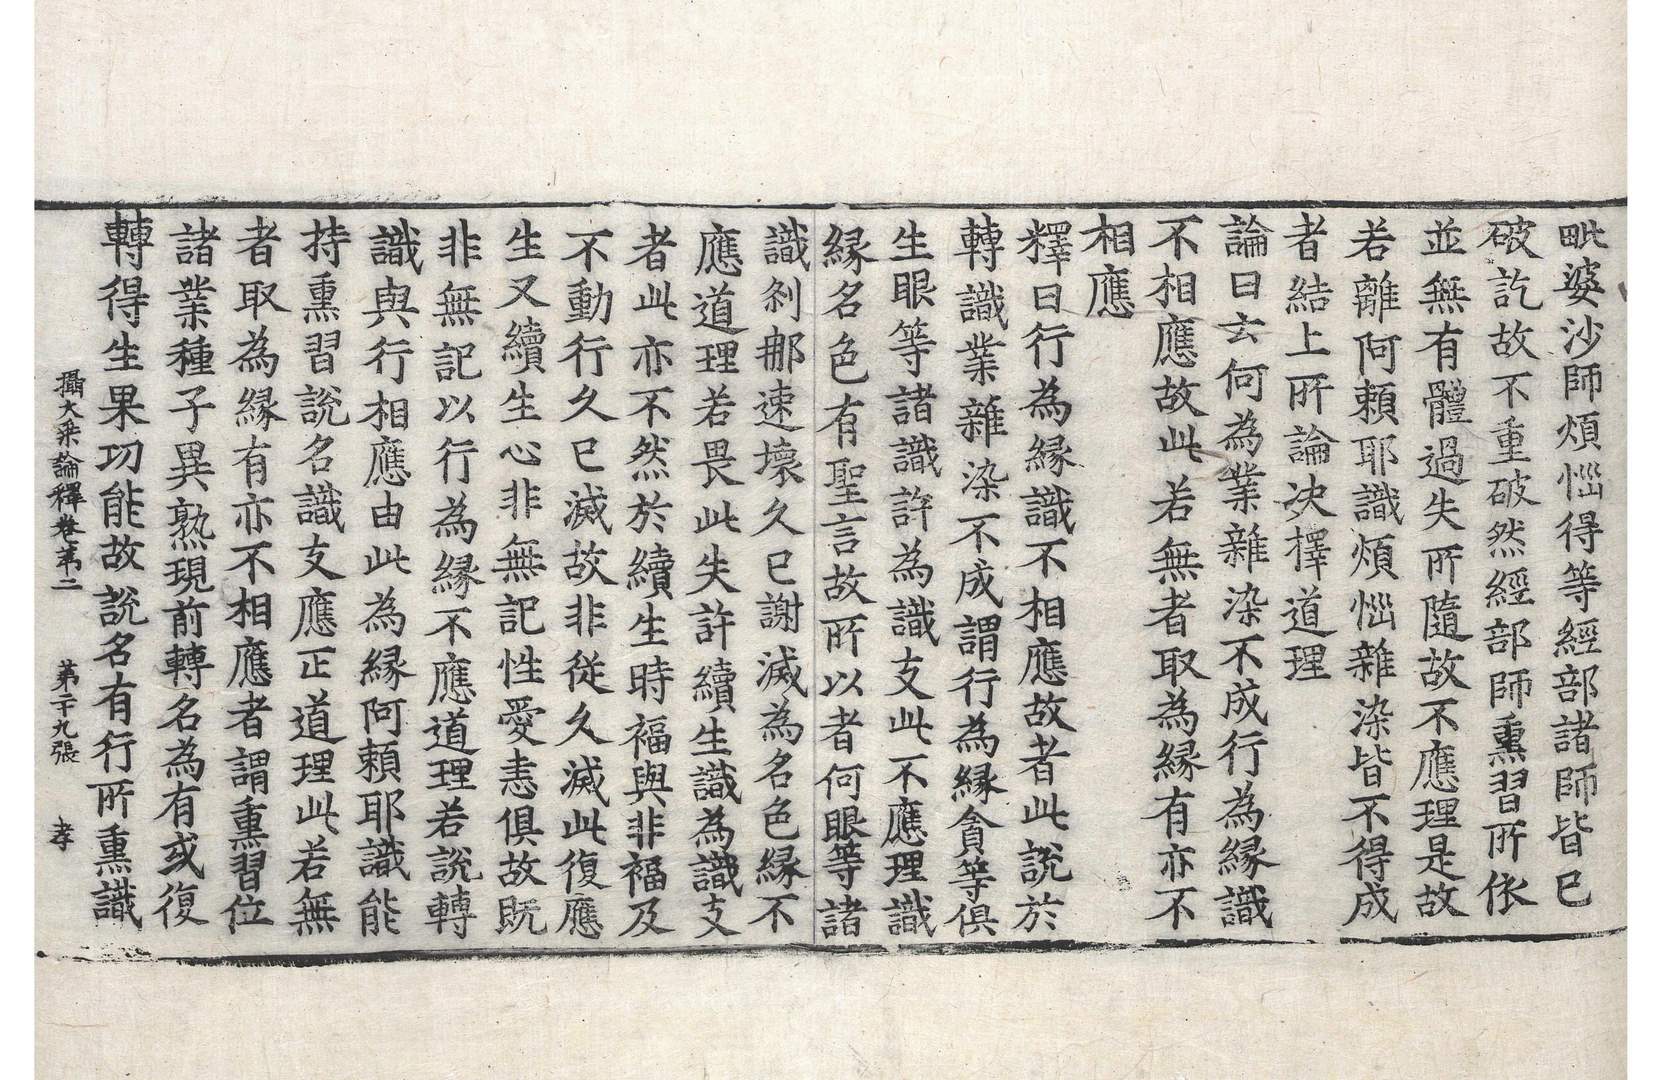 毗婆沙師煩惱得等經部諸師皆已
破訖故不重破然經部師熏習所依
並無有體過失所隨故不應理是故
若離阿頼耶識煩惱雜染皆不得成
者結上所論决擇道理
論曰云何為業雜染不成行為緣識
不相應故此若無者取為緣有亦不
相應
釋曰行為緣識不相應故者此說於
轉識業雜染不成謂行為緣貪等俱
生眼等諸識許為識支此不應理識
緣名色有聖言故所以者何眼等諸
識刹那速壞久已謝滅為名色緣不
應道理若畏此失許續生識為識支
者此亦不然於續生時福與非福及
不動行久已滅故非從久滅此復應
生又續生心非無記性愛恚俱故既
非無記以行為緣不應道理若說轉
識與行相應由此為緣阿頼耶識能
持熏習說名識支應正道理此若無
者取為緣有亦不相應者謂熏習位
諸業種子異熟現前轉名為有或復
轉得生果功能故說名有行所熏識
攝大乘論釋卷第二 第二十九張 孝